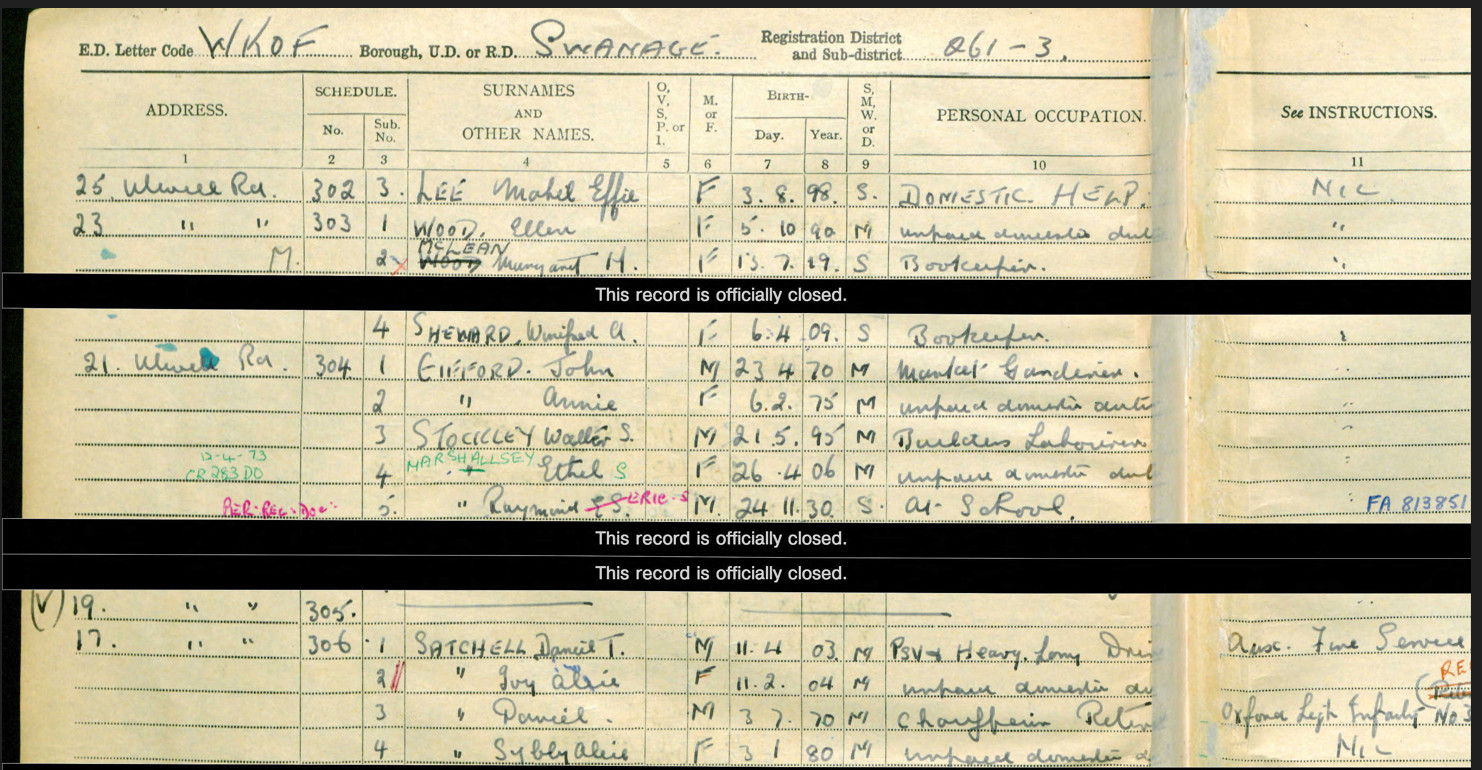 E.D. Letter Code WKOF Borough, U.D. or R.D. SWANAGE. Registration District and Sub-district 261-3.
ADDRESS. SCHEDULE. No. Sub. No. SURNAMES AND OTHER NAMES. O, V, S, P. or I. M. or F. BIRTH- Day. Year. S, M, W. or D. PERSONAL OCCUPATION. See INSTRUCTIONS.
1 2 3 4 5 6 7 8 9 10 11
25 Ulwell Rd. 302 3. LEE Mabel Effie F 3. 8. 98. S. DOMESTIC HELP. NIL
23 " " 303 1 WOOD, Ellen F 5. 10 90 M unpaid domestic duti "
McLEAN
M. 2 WOOD Margaret H. F 13. 7. 19. S Bookkeeper. "
This record is officially closed.
4 SHEWARD, Winifred A. F 6. 4 09. S Bookkeeper.
21. Ulwell Rd. 304 1 GIFFORD. John M 23 4 70 M Market Gardener.
2 " Annie F 6. 2. 75 M unpaid domestic dutie "
3 STOCKLEY Walter S. M 21. 5. 95 M Builders Labourer "
12-4-73 MARSHALLSEY
CR 283 DO 4 " Ethel S F 26 4 06 M unpaid domestic duti "
PER. REC. DOC. 5. " Raymond E S. ERIC-S M. 24 11. 30. S. At School. FA 813851
This record is officially closed.
This record is officially closed.
(V) 19. " " 305.
17. " " 306 1 SATCHELL Daniel T. M 11. 4 03 M PSV & Heavy Lorry Driv Aux. Fire Service
2 " Ivy Alsie F 11. 2. 04 M unpaid domestic du RE
3 " Daniel. M 3 7. 70 M Chauffeur Retire Oxford Light Infantry No 3
4 " Sybly Alsie F 3 1 80 M unpaid domestic d NIL